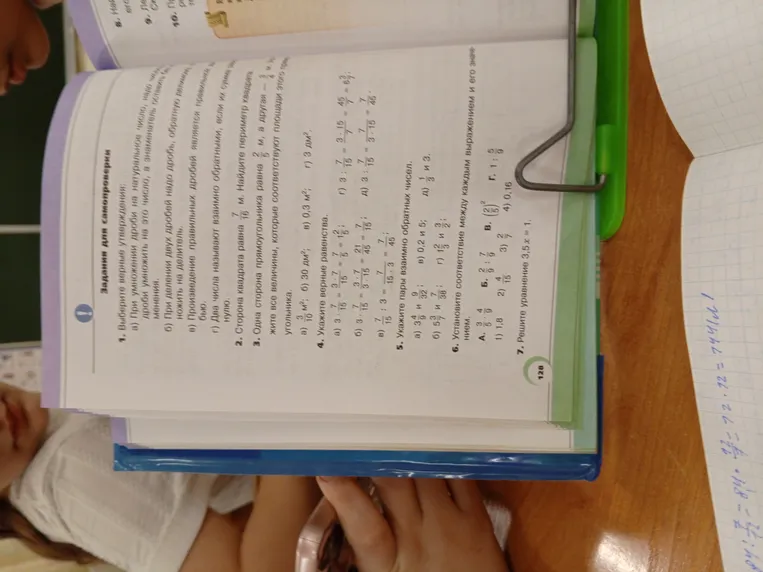 Задания для самопроверки
1. Выберите верные утверждения:
а) При умножении дроби на натуральное число, надо
дроби умножить на это число, а знаменатель оставить без
менения.
б) При делении двух дробей надо дробь, обратную делимому,
ножить на делитель.
в) Произведение правильных дробей является правильной
бью.
г) Два числа называют взаимно обратными, если их сумма
нулю.
2. Сторона квадрата равна 7/16 м. Найдите периметр квадрата.
3. Одна сторона прямоугольника равна 2/5 м, а другая — 3/4 м.
жите все величины, которые соответствуют площади этого
угольника.
а) 3/10 м²; б) 30 дм²; в) 0,3 м²; г) 3 дм².
4. Укажите верные равенства.
а) 3 · 7/15 = 3·7/15 = 7/5 = 1 2/5; г) 3 : 7/15 = 3·15/7 = 45/7 = 6 3/7;
б) 3 · 7/15 = 3·7/3·15 = 21/45 = 7/15; д) 3 : 7/15 = 7/3·15 = 7/45.
в) 7/15 : 3 = 7/15·3 = 7/45;
5. Укажите пары взаимно обратных чисел.
а) 3 4/9 и 9/32; в) 0,2 и 5; д) 1/3 и 3.
б) 5 3/7 и 7/38; г) 1 2/3 и 3/2;
6. Установите соответствие между каждым выражением и его значе-
нием.
А. 3/5 · 4/9 Б. 2/9 : 7/9 В. (2/5)² Г. 1 : 5/9
1) 1,8 2) 4/15 3) 2/7 4) 0,16
7. Решите уравнение 3,5x = 1.
128
8. Най
его
9.
10.